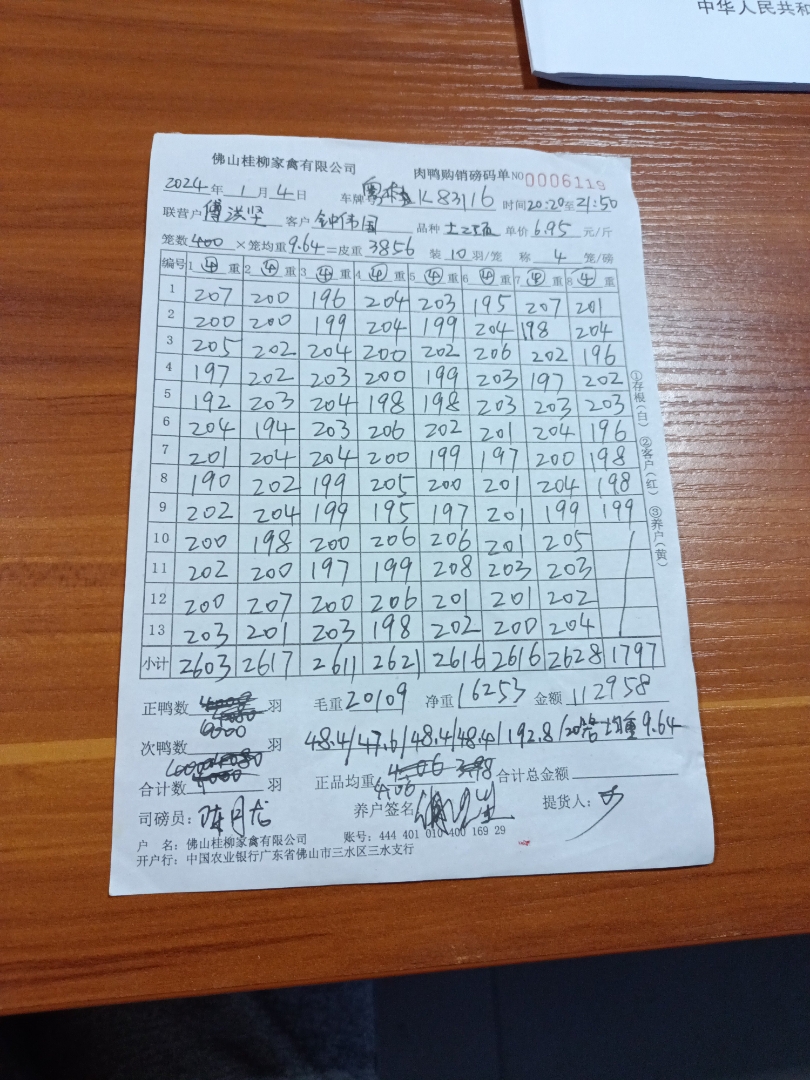 中华人民共和
佛山桂柳家禽有限公司 肉鸭购销磅码单 NO 0006119
2024年 1月 4日 车牌 K83116 时间 20:20 至 21:50
联营户 傅洪坚 客户 钟伟国 品种 单价 6.95 元/斤
笼数 400 ×笼均重 9.64 =皮重 3856 装 10 羽/笼 称 4 笼/磅
编号 1 ④ 重 2 ④ 重 3 ④ 重 4 ④ 重 5 ④ 重 6 ④ 重 7 ④ 重 8 ④ 重
1 207 200 196 204 203 195 207 201
2 200 200 199 204 199 204 198 204
3 205 202 204 200 202 206 202 196
4 197 202 203 200 199 203 197 202
5 192 203 204 198 198 203 203 203
6 204 194 203 206 202 201 204 196
7 201 204 204 200 199 197 200 198
8 190 202 199 205 200 201 204 198
9 202 204 199 195 197 201 199 199
10 200 198 200 206 206 201 205
11 202 200 197 199 208 203 203
12 200 207 200 206 201 201 202
13 203 201 203 198 202 200 204
小计 2603 2617 2611 2621 2616 2616 2628 1797
①存根(白) ②客户(红) ③养户(黄)
正鸭数 羽 毛重 20109 净重 16253 金额 112958
次鸭数 羽 48.4/47.6/48.4/48.4/192.8/20笼 均重 9.64
合计数 羽 正品均重 4.06 合计总金额
司磅员: 养户签名 提货人:
户 名: 佛山桂柳家禽有限公司 账号: 444 401 010 400 169 29
开户行: 中国农业银行广东省佛山市三水区三水支行